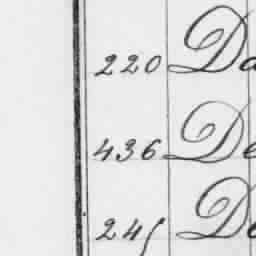 220 Da
436 De
245 De